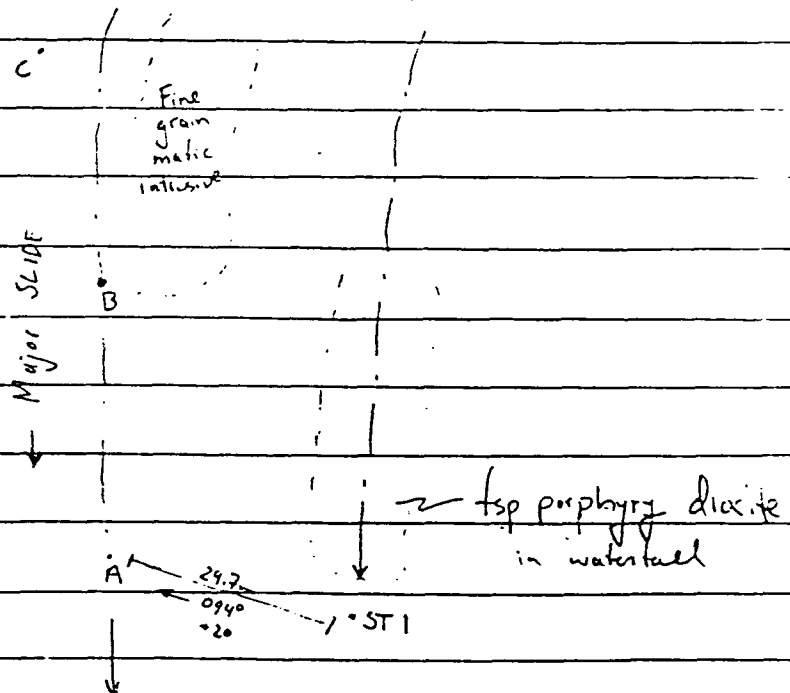 C
Fine
grain
mafic
intrusive
B
Major SLIDE
fsp porphyry diorite
in waterfall
A
29.7
094°
ST 1